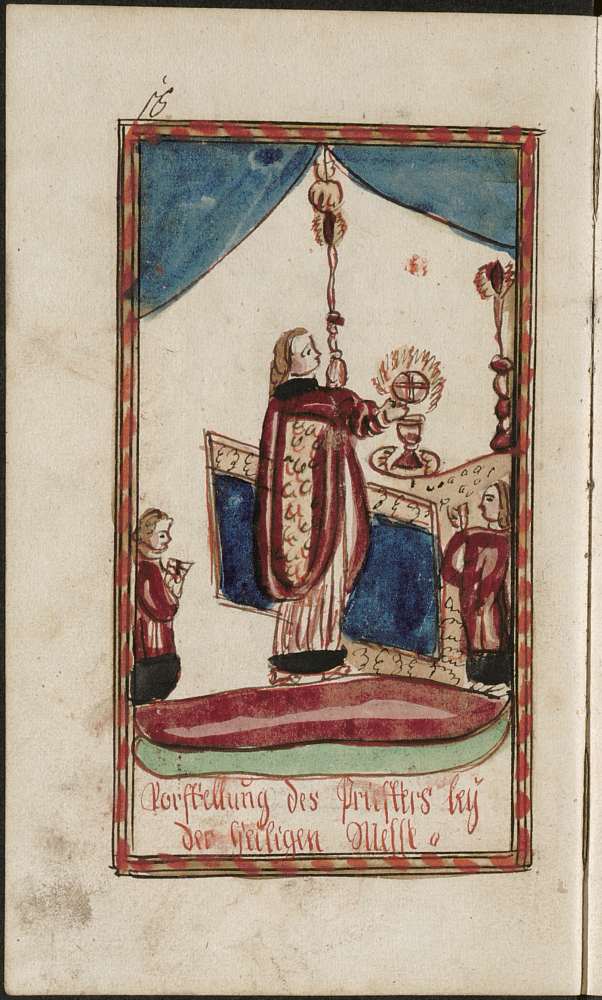 16
Vorstellung des Priesters beÿ
der Heiligen Messe.